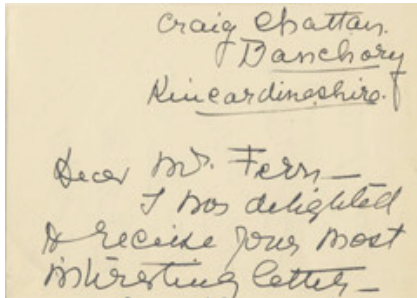 Craig Chattan.
Banchory
Kincardineshire.
Dear Mr. Fern—
I was delighted
to receive your most
interesting letter—